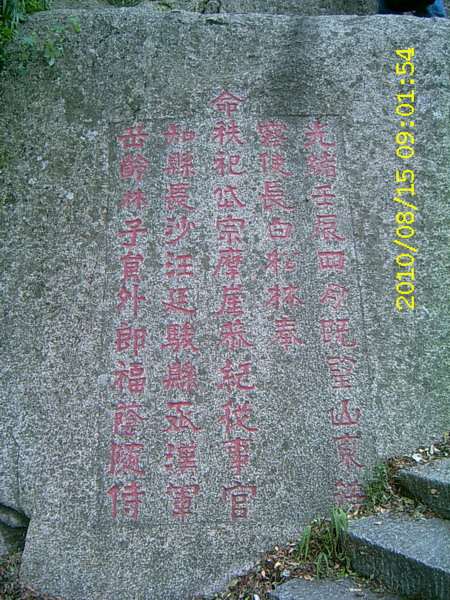 光緒壬辰四月既望山東鹽
運使長白松林奉
命秩祀岱宗摩崖恭紀從事官
知縣長沙汪廷駿縣丞漢軍
岳齡林子員外郎福蔭隨侍
2010/08/15 09:01:54